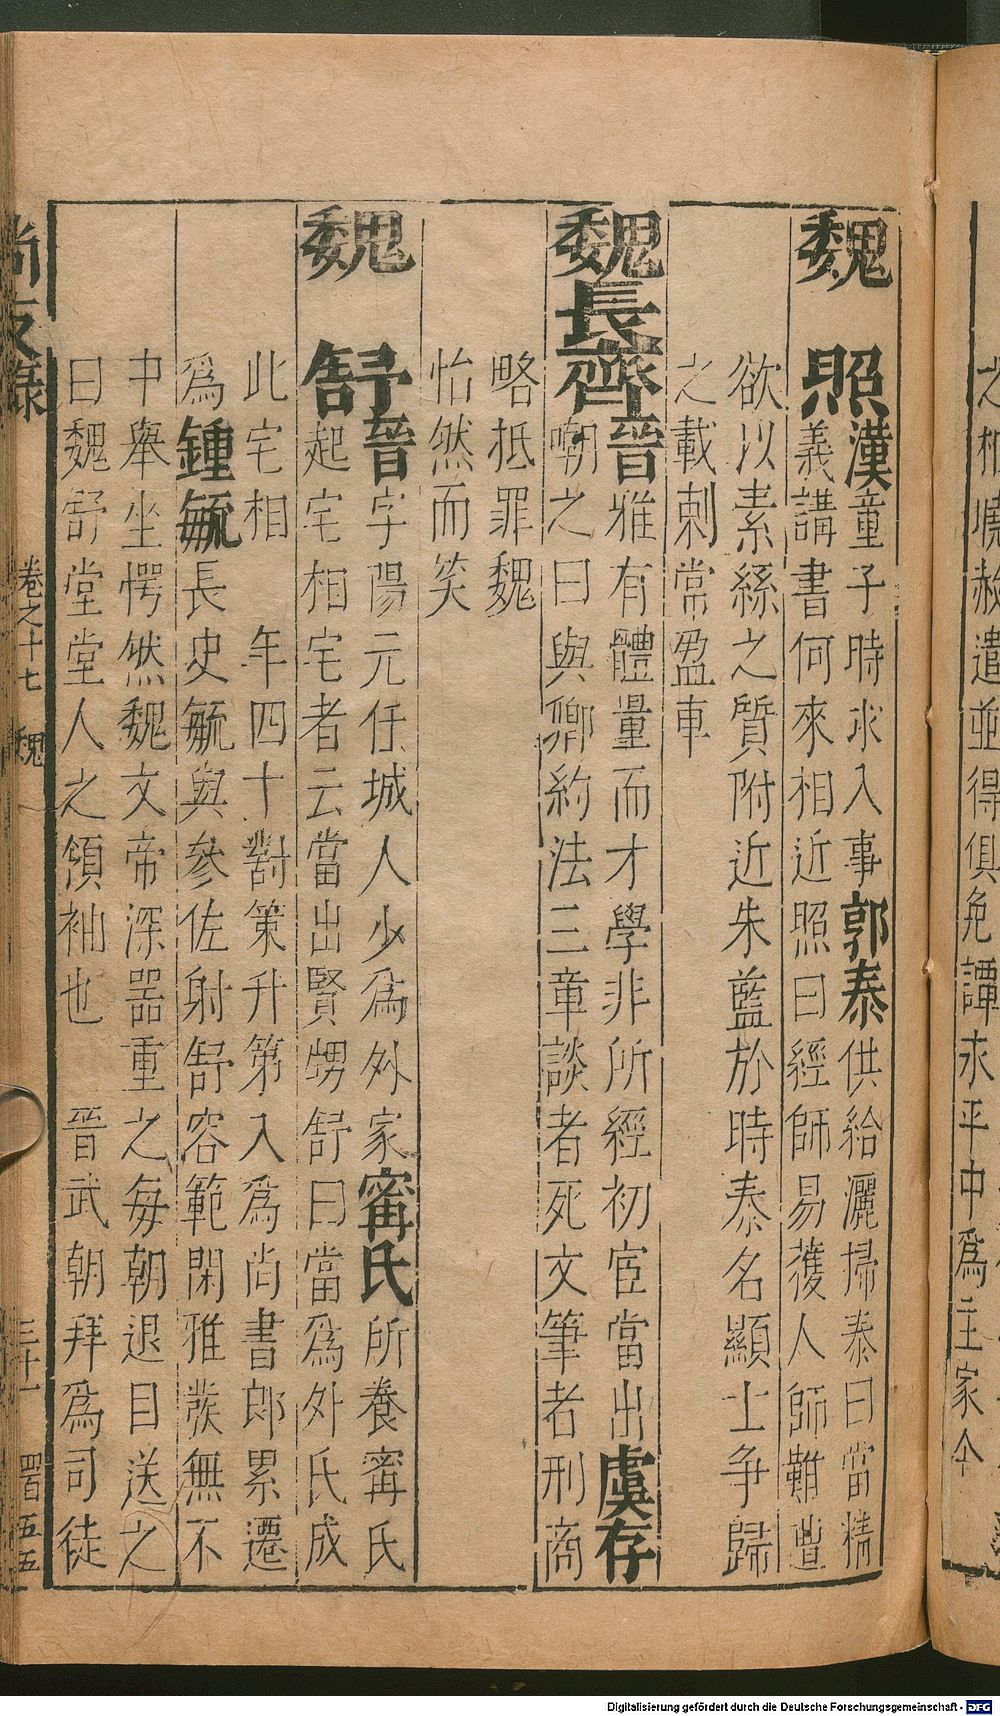 之柤壙赦遣並得俱免譚永平中爲主家令
魏　照漢童子時求入事郭泰供給灑掃泰曰當精
義講書何來相近照曰經師易獲人師難遭
欲以素絲之質附近朱藍於時泰名顯士爭歸
之載刺常盈車
魏長齊晉雅有體量而才學非所經初宦當出虞存
嘲之曰與卿約法三章談者死文筆者刑商
略抵罪魏
怡然而笑
魏　舒晉字陽元任城人少爲外家甯氏所養甯氏
起宅相宅者云當出賢甥舒曰當爲外氏成
此宅相　年四十對策升第入爲尚書郎累遷
爲鍾毓長史毓與參佐射舒容範閑雅發無不
中舉坐愕然魏文帝深器重之每朝退目送之
曰魏舒堂堂人之領袖也　晉武朝拜爲司徒
尚友錄　卷之十七　魏　三十一　四百五五
Digitalisierung gefördert durch die Deutsche Forschungsgemeinschaft - DFG